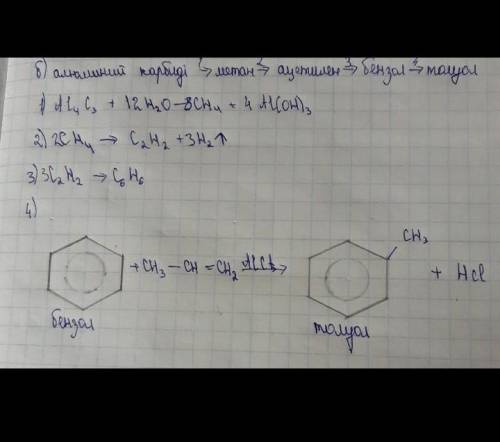 б) алюминий карбиді 1→ метан 2→ ацетилен 3→ бензол 4→ толуол
1) Al₄C₃ + 12H₂O → 3CH₄ + 4Al(OH)₃
2) 2CH₄ → C₂H₂ + 3H₂↑
3) 3C₂H₂ → C₆H₆
4)
CH₃
+ CH₃ – CH = CH₂ AlCl₃→ + HCl
бензол толуол